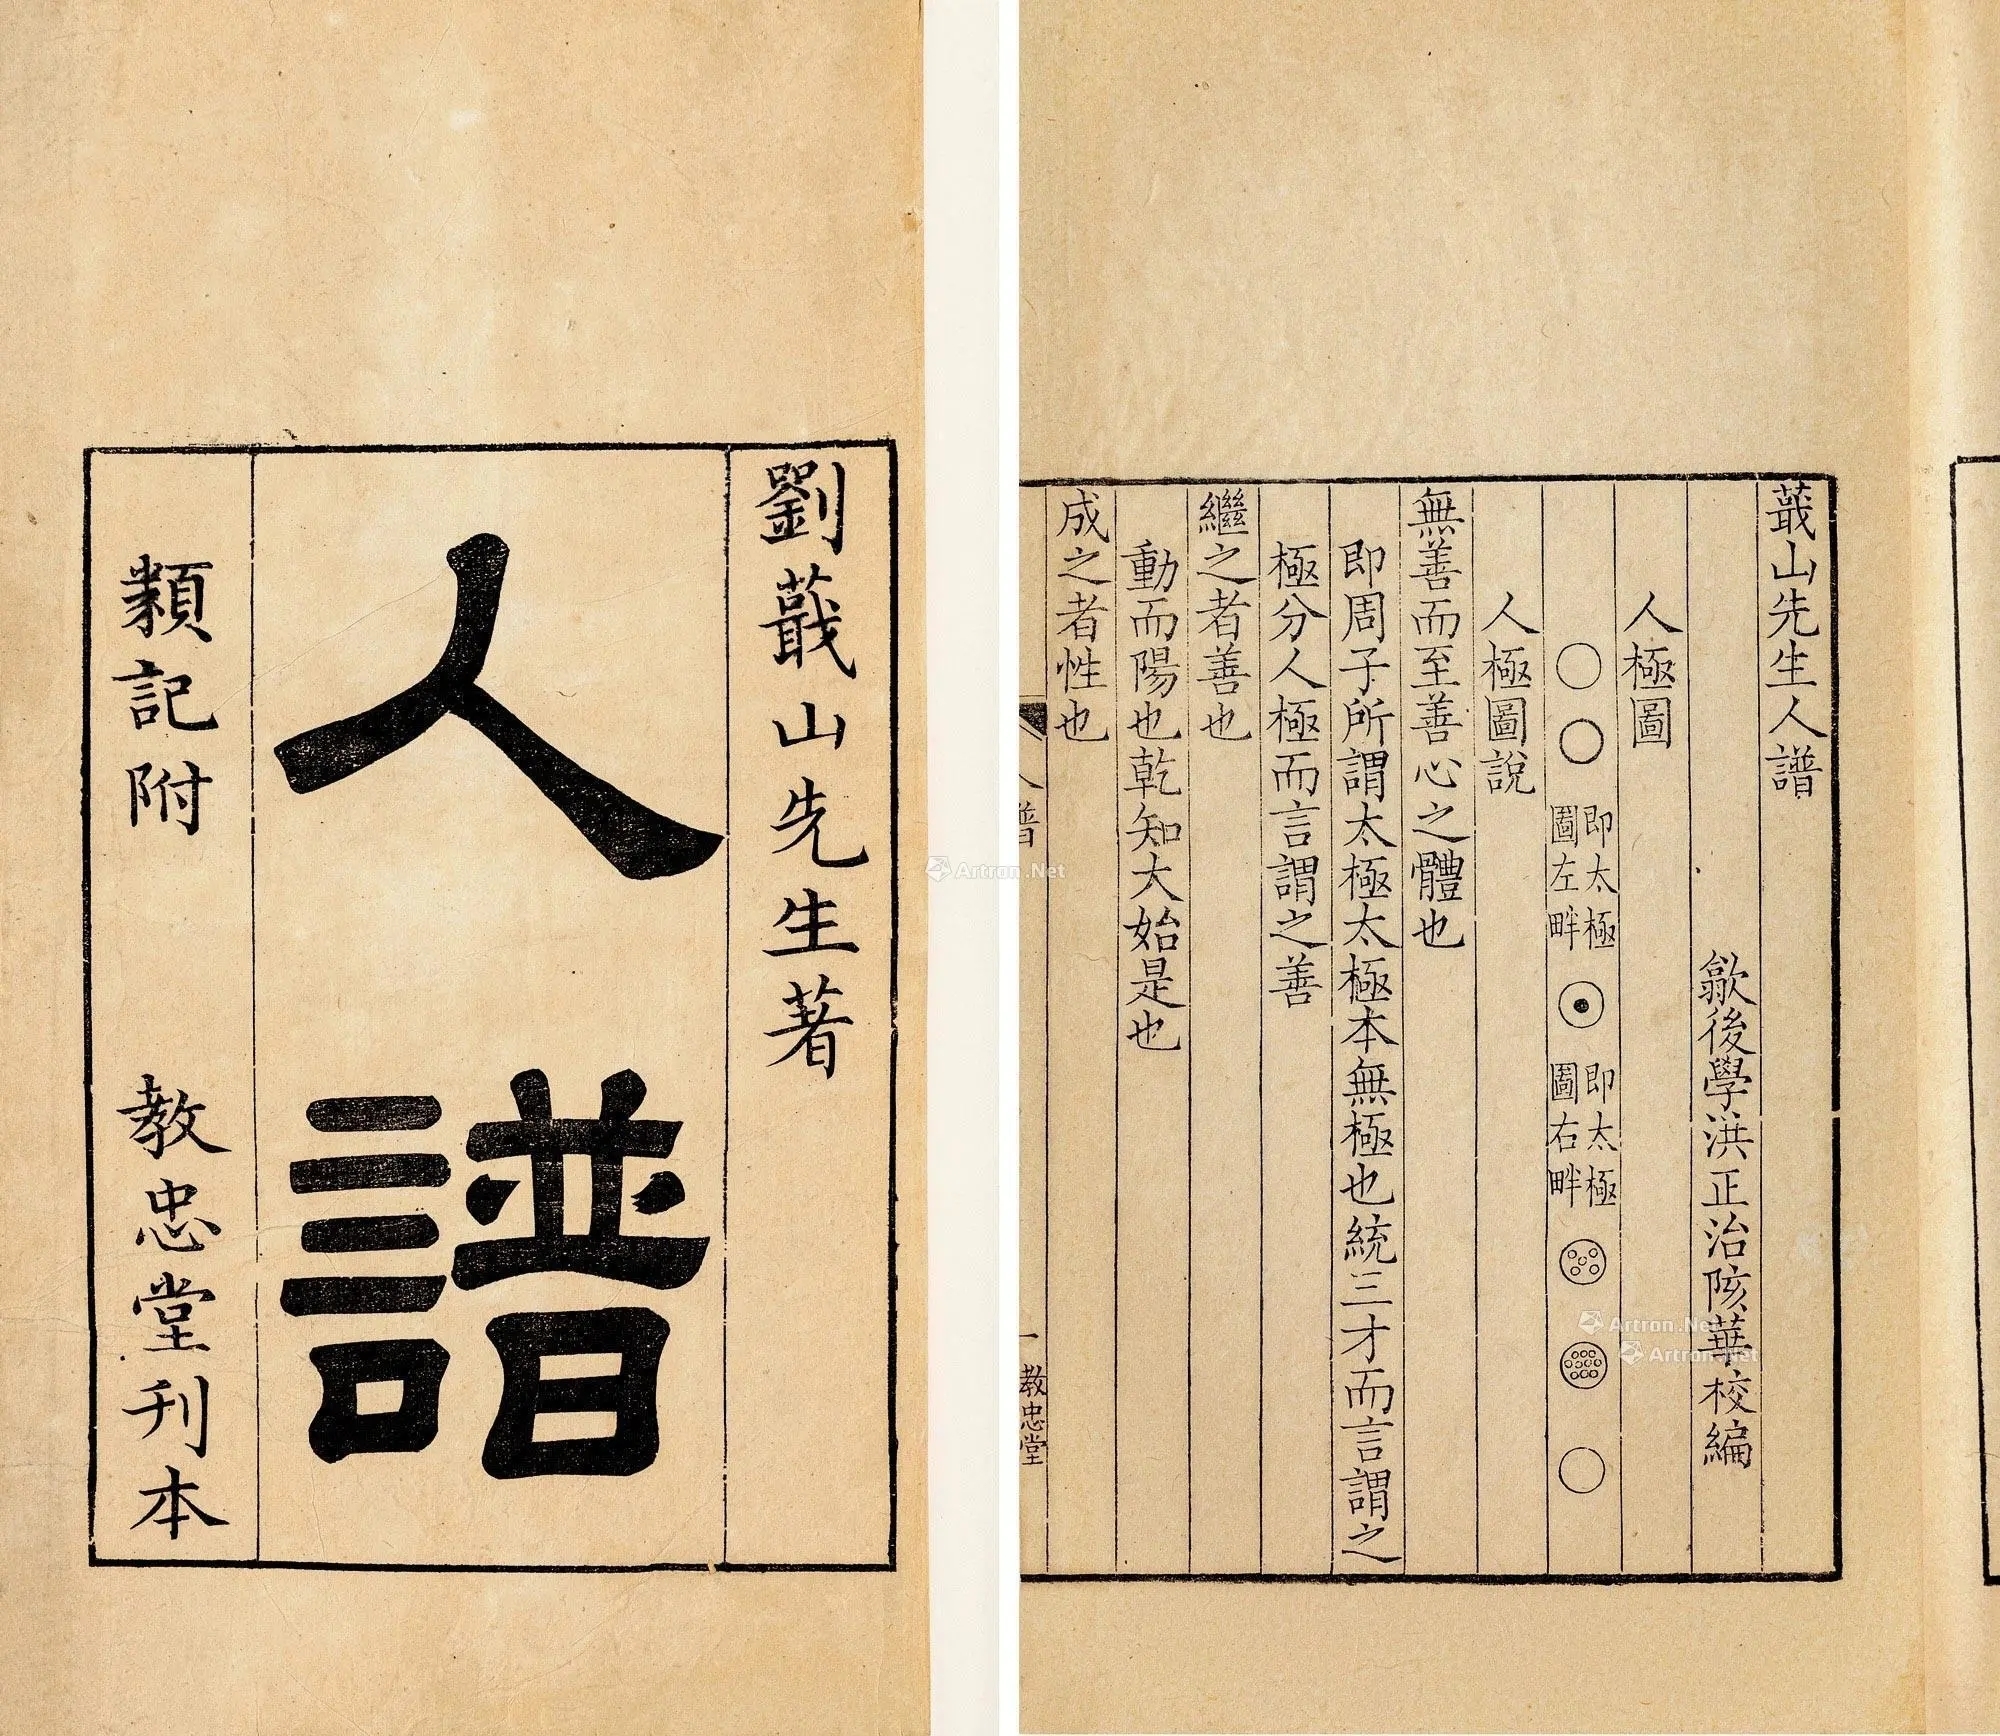 劉蕺山先生著
人譜
類記附　教忠堂刊本
蕺山先生人譜
歙後學洪正治陔華校編
人極圖
○○即太極圖左畔⊙即太極圖右畔○
人極圖說
無善而至善心之體也
即周子所謂太極太極本無極也統三才而言謂之
極分人極而言謂之善
繼之者善也
動而陽也乾知大始是也
成之者性也
人譜
一
教忠堂
Artron.Net
Artron.Net
Artron.Net